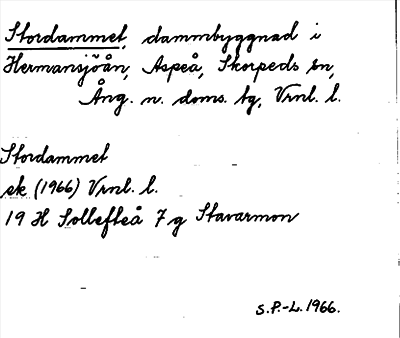 Stordammet, dammbyggnad i
Hermansjöån, Aspeå, Skorpeds sn,
Ång. n. doms. bg, Vrnl. l.
Stordammet
ek (1966) Vrnl. l.
19 H Sollefteå 7 g Stavarmon
S.P.-L. 1966.